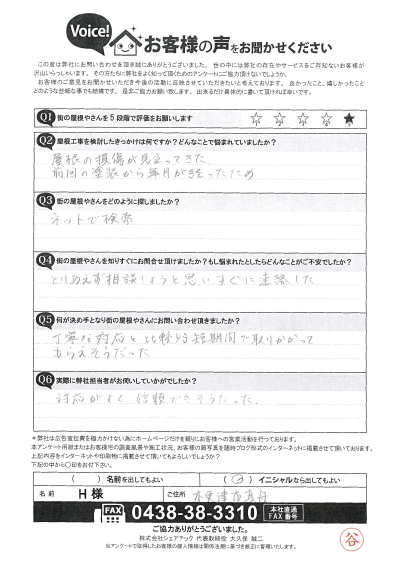 Voice!
お客様の声をお聞かせください
この度は弊社にお問い合わせを頂き誠にありがとうございました。世の中には弊社の存在やサービスをご存じないお客様が
沢山いらっしゃいます。その方たちに弊社をよく知って頂くためのアンケートにご協力頂けないでしょうか。
お客様のご意見をお聞かせいただき今後の活動に反映させていただきたいと考えております。良かったこと、嬉しかったこと
どのような些細な事でも結構です。是非ご協力お願い致します。出来るだけ具体的に書いて頂ければ幸いです。
Q1 街の屋根やさんを5段階で評価をお願いします ☆ ☆ ☆ ☆ ★
Q2 屋根工事を検討したきっかけは何ですか?どんなことで悩まれていましたか?
屋根の損傷が見立ってきた
前回の塗装から年月が経ったため
Q3 街の屋根やさんをどのように探しましたか?
ネットで検索
Q4 街の屋根やさんを知りすぐにお問合せ頂けましたか?もし悩まれたとしたらどんなことがご不安でしたか?
とりあえず相談しようと思いすぐに連絡した
Q5 何が決め手となり街の屋根やさんにお問い合わせ頂きましたか?
丁寧な対応と比較的短期間で取りかかって
もらえそうだった
Q6 実際に弊社担当者がお伺いしていかがでしたか?
対応がよく、信頼できそうだった。
*弊社は広告宣伝費を極力かけない為にホームページだけを頼りにお客様への営業活動を行っております。
本アンケート用紙またはお客様宅の調査風景や施工状況、お客様の顔写真を随時ブログ形式のインターネットに掲載させて頂いております。
上記内容をインターネットや印刷物に掲載させて頂いてもよろしいでしょうか?
下記の中から〇印をお付下さい。
( )名前を出してもよい (〇)イニシャルなら出してもよい
名前 H様 ご住所 木更津市真舟
FAX 0438-38-3310 本社直通 FAX番号
ご協力ありがとうございました。
株式会社シェアテック 代表取締役 大久保 誠二
※アンケートで取得したお客様の個人情報は関係法規に基づき厳正に管理いたします。
谷